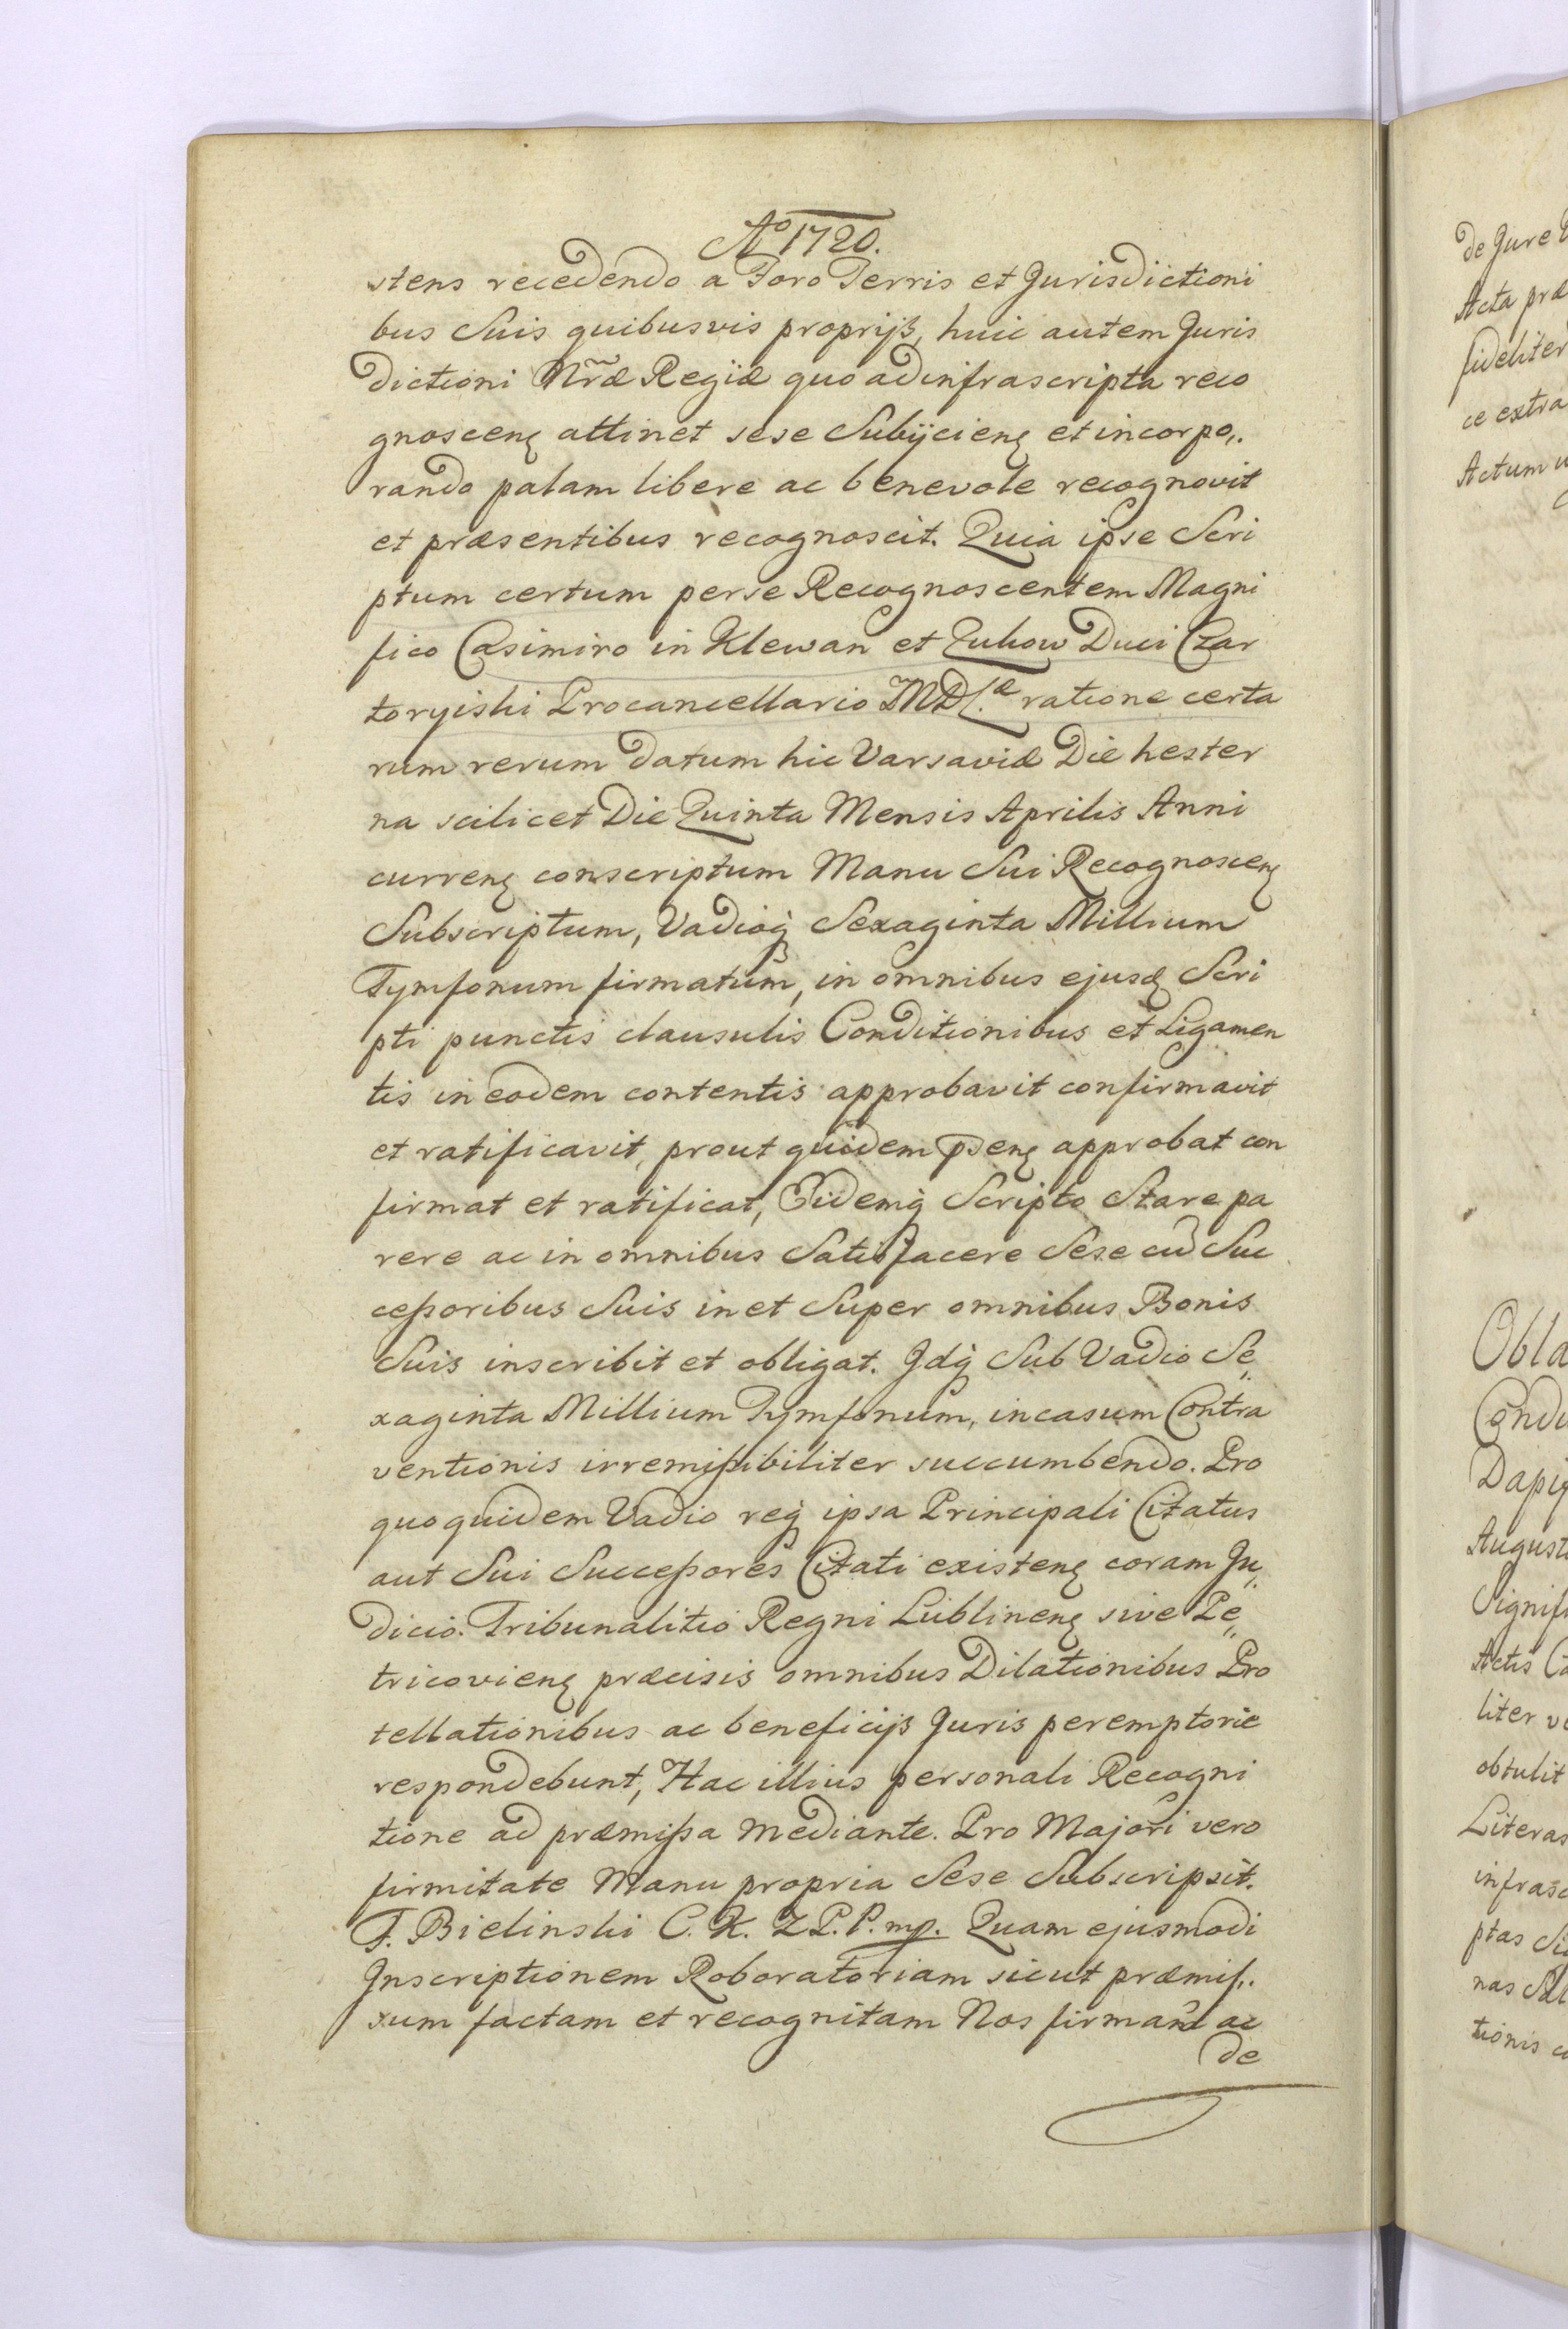 Aº 1720.
stens recedendo a Foro Terris et Jurisdictioni
bus Suis quibusvis proprijs, huic autem Juris
dictioni Nr̃æ Regiæ quo ad infrascripta reco
gnoscenꝫ attinet sese Subijcienꝫ et incorpo„
rando palam libere ac benevole recognovit
et præsentibus recognoscit. Quia ipse Scri
ptum certum per se Recognoscentem Magni
fico Casimiro in Klewan et Zukow Duci Czar
toryiski Procancellario MDL.æ ratione certa
rum rerum datum hic Varsaviæ Die hester
na scilicet Die Quinta Mensis Aprilis Anni
currenꝫ conscriptum Manu Sui Recognoscenꝫ
Subscriptum, Vadioq̃ Sexaginta Millium
Tymfonum firmatum, in omnibus ejusdꝫ Scri
pti punctis clausulis Conditionibus et Ligamen
tis in eodem contentis approbavit confirmavit
et ratificavit, prout quidem p̄senꝫ approbat con
firmat et ratificat, Eidemq̃ Scripto Stare pa
rere ac in omnibus Satisfacere Sese cũ Suc
cessoribus Suis in et Super omnibus Bonis
Suis inscribit et obligat. Idq̃ Sub Vadio Se„
xaginta Millium Tymfonum, in casum Contra
ventionis irremissibiliter succumbendo. Pro
quo quidem Vadio req̃ ipsa Principali Citatus
aut Sui Successores Citati existenꝫ coram Ju„
dicio Tribunalitio Regni Lublinenꝫ sive Pe„
tricovienꝫ præcisis omnibus Dilationibus Pro
tellationibus ac beneficijs Juris peremptorie
respondebunt, Hac illius personali Recogni
tione ad præmissa mediante. Pro Majori vero
firmitate Manu propria Sese Subscripsit.
F. Bielinski C. K. Z P. P. mp. Quam ejusmodi
Inscriptionem Roboratoriam sicut præmis„
sum factam et recognitam Nos firmam̃ ac
de
de Jure
Acta præ
fideliter
ce extra
Actum u
Obla
Condi
Dapif
August
Signifi
Actis Ca
liter v
obtulit
Literas
infrasc
ptas Su
nas Sal
tionis c